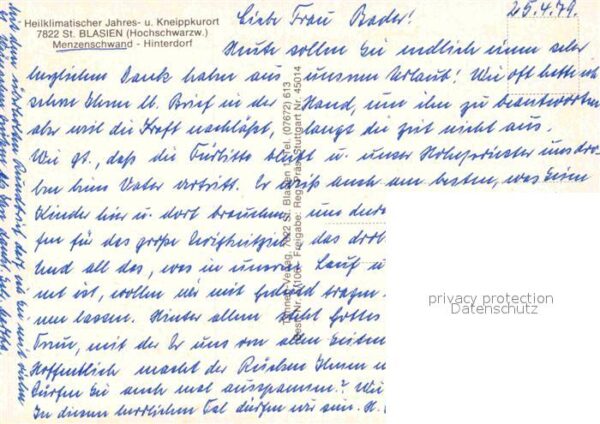 Heilklimatischer Jahres- u. Kneippkurort
7822 St. BLASIEN (Hochschwarzw.)
Menzenschwand - Hinterdorf
25.4.79.
Liebe Frau Bader!
Heute sollen Sie endlich einen sehr
herzlichen Dank haben aus unserem Urlaub! Wie oft hatte ich
schon Ihren lb. Brief in der Hand, um ihn zu beantworten
aber weil die Kraft nachläßt, langt die Zeit nicht aus.
Wie gt., daß die Fürbitte bleibt u. unser Hohepriester uns dro-
ben beim Vater vertritt. Er weiß auch am besten, was seine
Kinder hier u. dort brauchen
für das große Ewigkeitsziel das
Und all das, was in unserem Lauf u
not ist, wollen wir mit Geduld tragen.
nen lassen. Hinter allem steht Gottes
Treue, mit der Er uns von allen Seiten
Hoffentlich macht der Rücken Ihnen
Dürfen Sie auch mal ausspannen? Wie
In diesem herrlichen Tal dürfen wir sein.
7822 St. Blasien 1, Tel. (07672) 613
Freigabe: Reg. Präs. Stuttgart Nr. 45014
privacy protection
Datenschutz